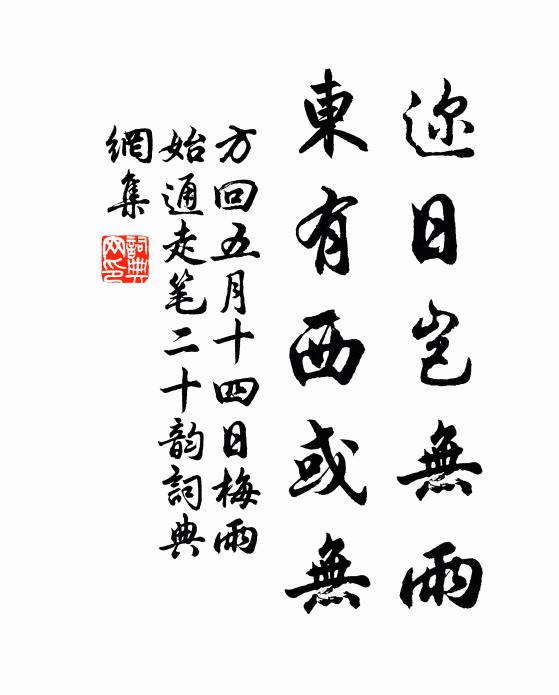 迩日岂無雨
東有西或無
方回五月十四日梅雨
始通走笔二十韵詞典
網集
詞典
网印